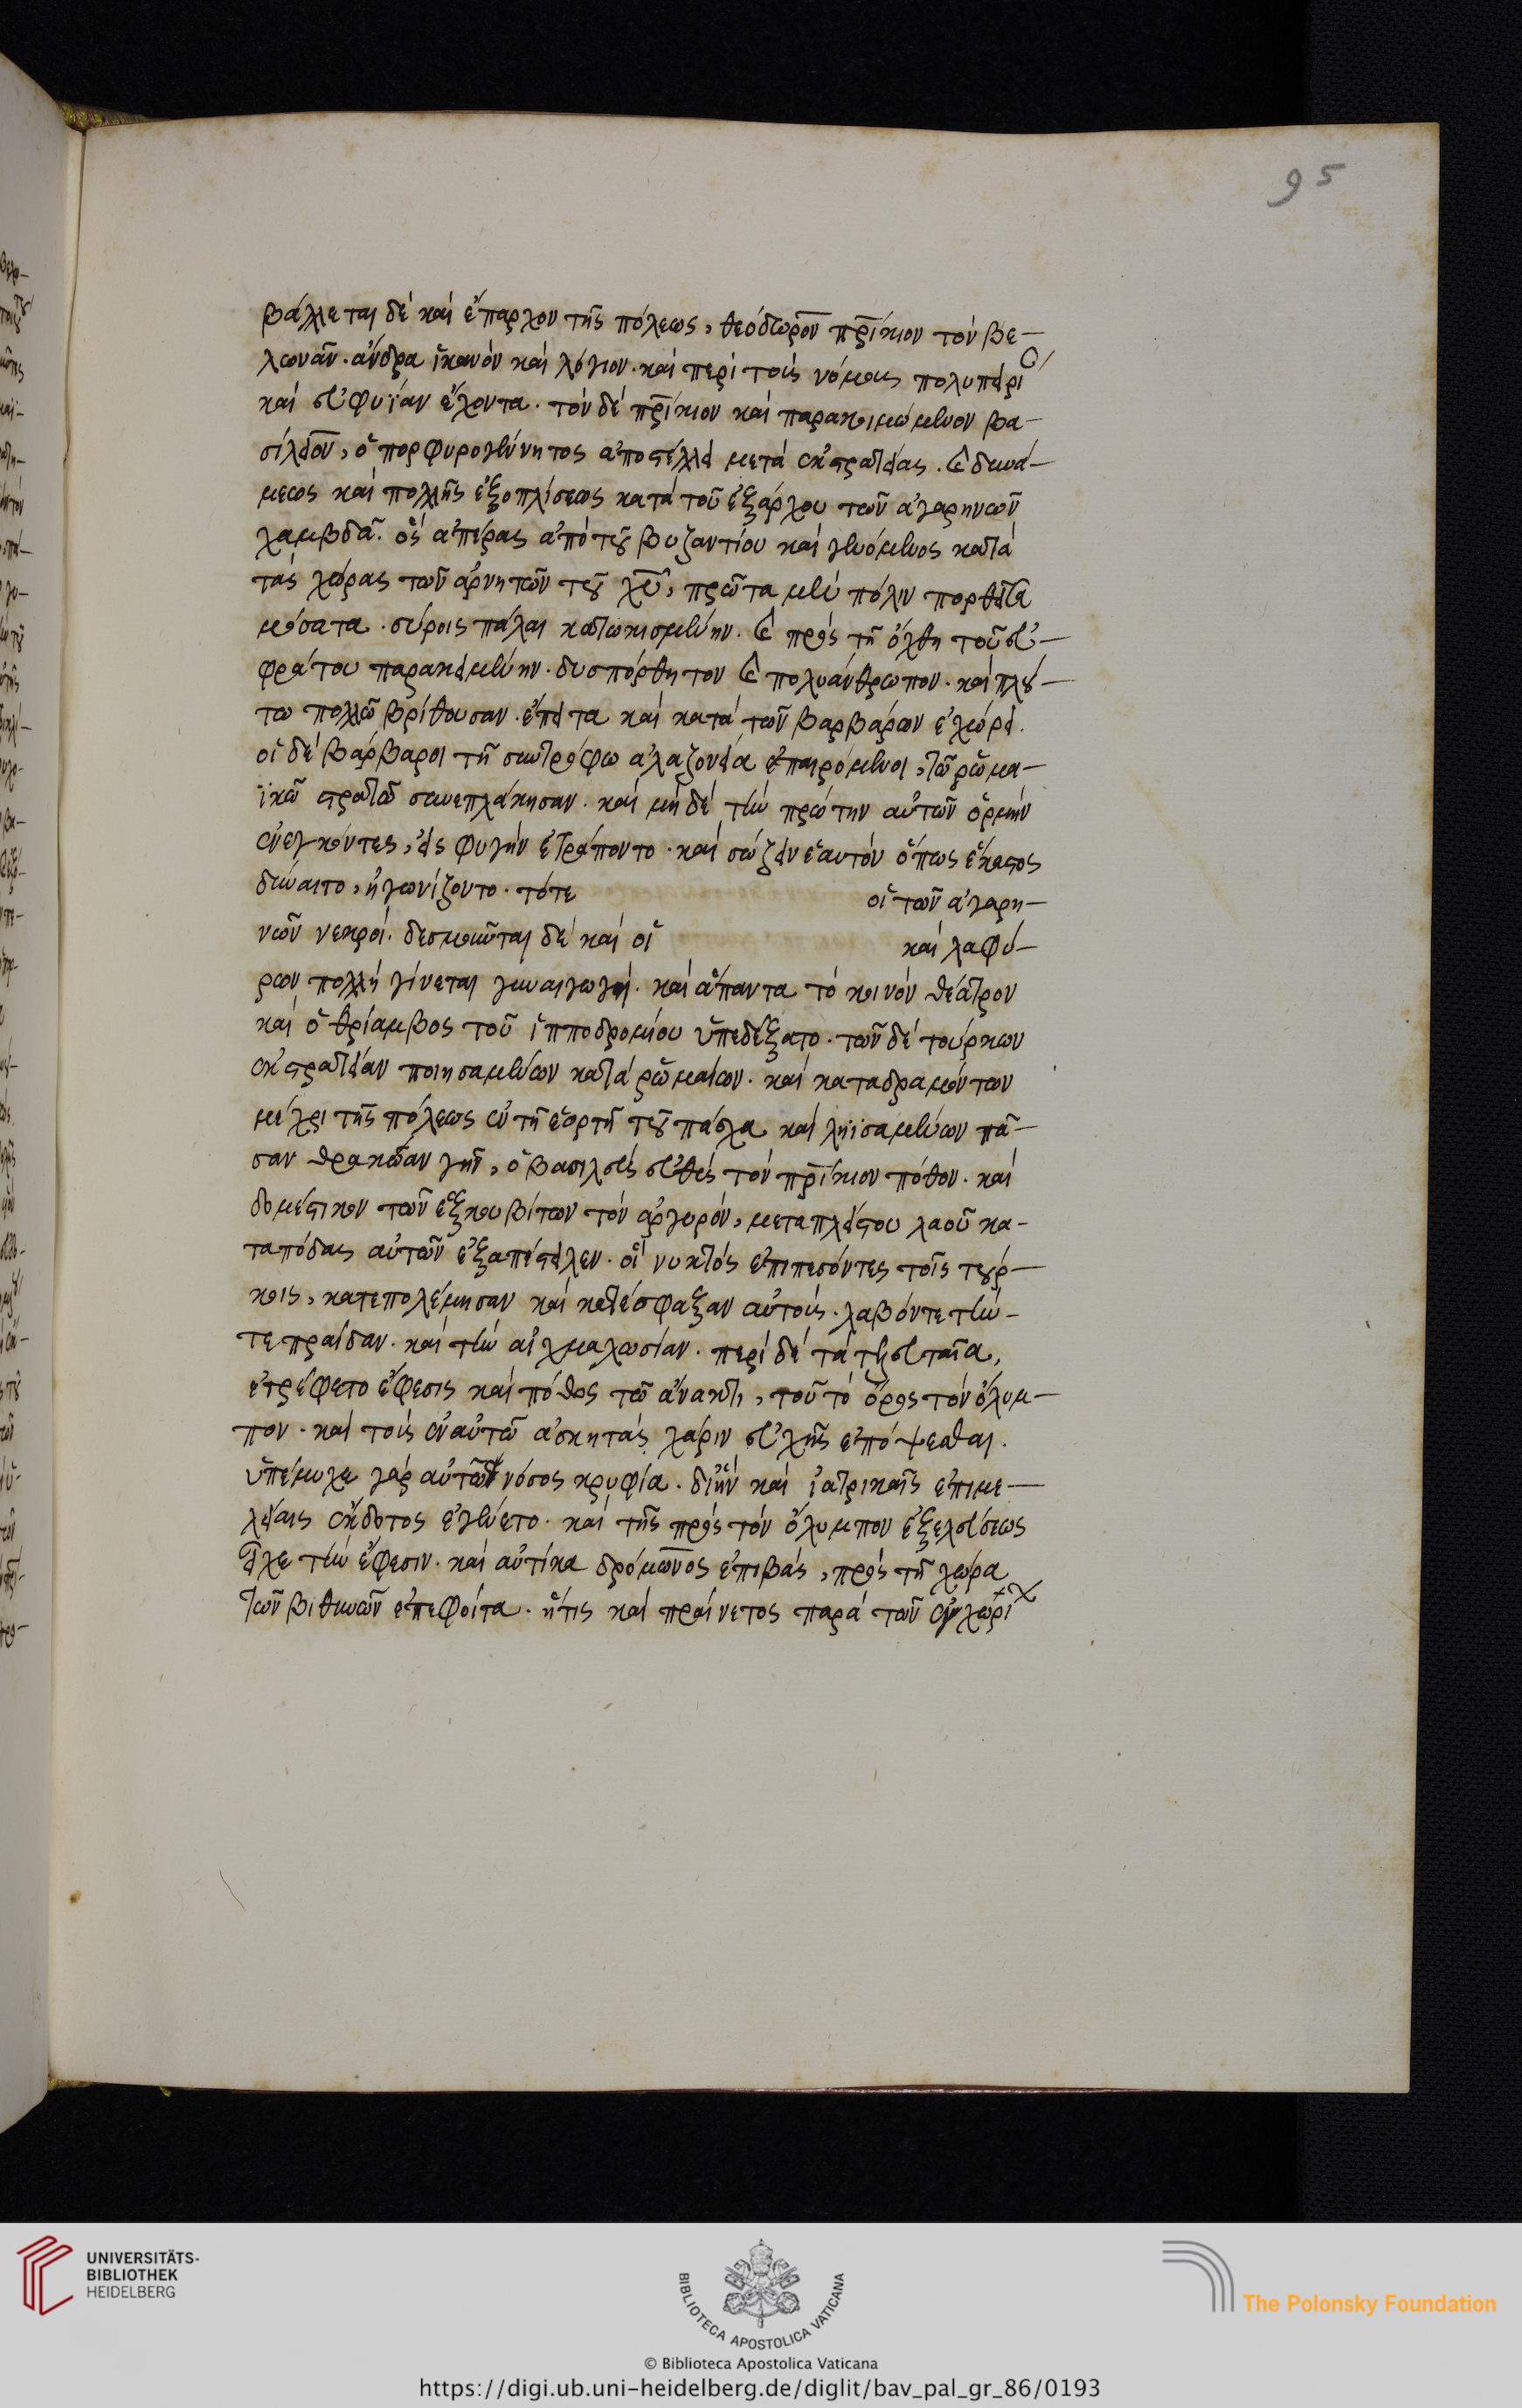 95
βάλλεται δὲ καὶ ἔπαρχον τῆς πόλεως, θεόδωρον πρίκιον τὸν βε-
λωνᾶν. ἄνδρα ἱκανὸν καὶ λόγιον. καὶ περὶ τοὺς νόμους πολυπειρί
καὶ εὐφυΐαν ἔχοντα. τὸν δὲ πρίκιον καὶ παρακοιμώμενον βα-
σίλειον, ὁ πορφυρογέννητος ἀποστέλλει μετὰ ἐκστρατείας. καὶ δυνά-
μεως καὶ πολλῆς ἐξοπλίσεως κατὰ τοῦ ἐξάρχου τῶν ἀγαρηνῶν
χαμβδᾶ. ὃς ἀπάρας ἀπὸ τοῦ βυζαντίου καὶ γενόμενος κατὰ
τὰς χώρας τῶν ἀρνητῶν τοῦ χυ, πρῶτα μὲν πόλιν πορθεῖ σα
μόσατα. σύροις πάλαι κατωκισμένην. καὶ πρὸς τῇ ὄχθῃ τοῦ εὐ-
φράτου παρακειμένην. δυσπόρθητον καὶ πολυάνθρωπον. καὶ πλού-
τω πολλῶ βρίθουσαν. ἔπειτα καὶ κατὰ τῶν βαρβάρων ἐχώρει.
οἱ δὲ βάρβαροι τῇ συντρόφω ἀλαζονεία ἐπαιρόμενοι, τῶ ῥωμα-
ϊκῶ στρατῶ συνεπλάκησαν. καὶ μὴ δὲ τὴν πρώτην αὐτῶν ὁρμὴν
ἐνεγκόντες, εἰς φυγὴν ἐτράποντο. καὶ σώζειν ἑαυτὸν ὅπως ἕκαστος
δύναιτο, ἠγωνίζοντο. τότε οἱ τῶν ἀγαρη-
νῶν νεκροί. δεσμοῦνται δὲ καὶ οἱ καὶ λαφύ-
ρων πολλὴ γίνεται συναγωγή. καὶ ἅπαντα τὸ κοινὸν θέατρον
καὶ ὁ θρίαμβος τοῦ ἱπποδρομίου ὑπεδέξατο. τῶν δὲ τούρκων
ἐκστρατείαν ποιησαμένων κατὰ ῥωμαίων. καὶ καταδραμόντων
μέχρι τῆς πόλεως ἐν τῇ ἑορτῇ τοῦ πάσχα καὶ ληϊσαμένων πᾶ-
σαν θρακῴαν γῆν, ὁ βασιλεὺς εὐθὺς τὸν πρίκιον πόθον. καὶ
δομέστικον τῶν ἐξκουβίτων τὸν ἀργυρόν, μετὰ πλείστου λαοῦ κα-
ταπόδας αὐτῶν ἐξαπέστειλεν. οἳ νυκτὸς ἐπιπεσόντες τοῖς τούρ-
κοις, κατεπολέμησαν καὶ κατέσφαξαν αὐτούς. λαβόντε τὴν-
τε πραίδαν. καὶ τὴν αἰχμαλωσίαν. περὶ δὲ τὰ τελευταῖα,
ἐτρέφετο ἔφεσις καὶ πόθος τῶ ἄνακτι, τοῦ τὸ ὄρος τὸν ὄλυμ-
πον. καὶ τοὺς ἐν αὐτῶ ἀσκητὰς χάριν εὐχῆς ἐπόψεσθαι.
ὑπέμυχε γὰρ αὐτῶ νόσος κρυφία. δι' ἣν καὶ ἰατρικαῖς ἐπιμε-
λείαις ἔκδοτος ἐγένετο. καὶ τῆς πρὸς τὸν ὄλυμπον ἐξελεύσεως
εἶχε τὴν ἔφεσιν. καὶ αὐτίκα δρόμωνος ἐπιβάς, πρὸς τῇ χώρα
τῶν βιθυνῶν ἐπεφοίτα. ἥτις καὶ πραίνετος παρὰ τῶν ἐγχωρί
UNIVERSITÄTS-
BIBLIOTHEK
HEIDELBERG
BIBLIOTECA APOSTOLICA VATICANA
The Polonsky Foundation
© Biblioteca Apostolica Vaticana
https://digi.ub.uni-heidelberg.de/diglit/bav_pal_gr_86/0193